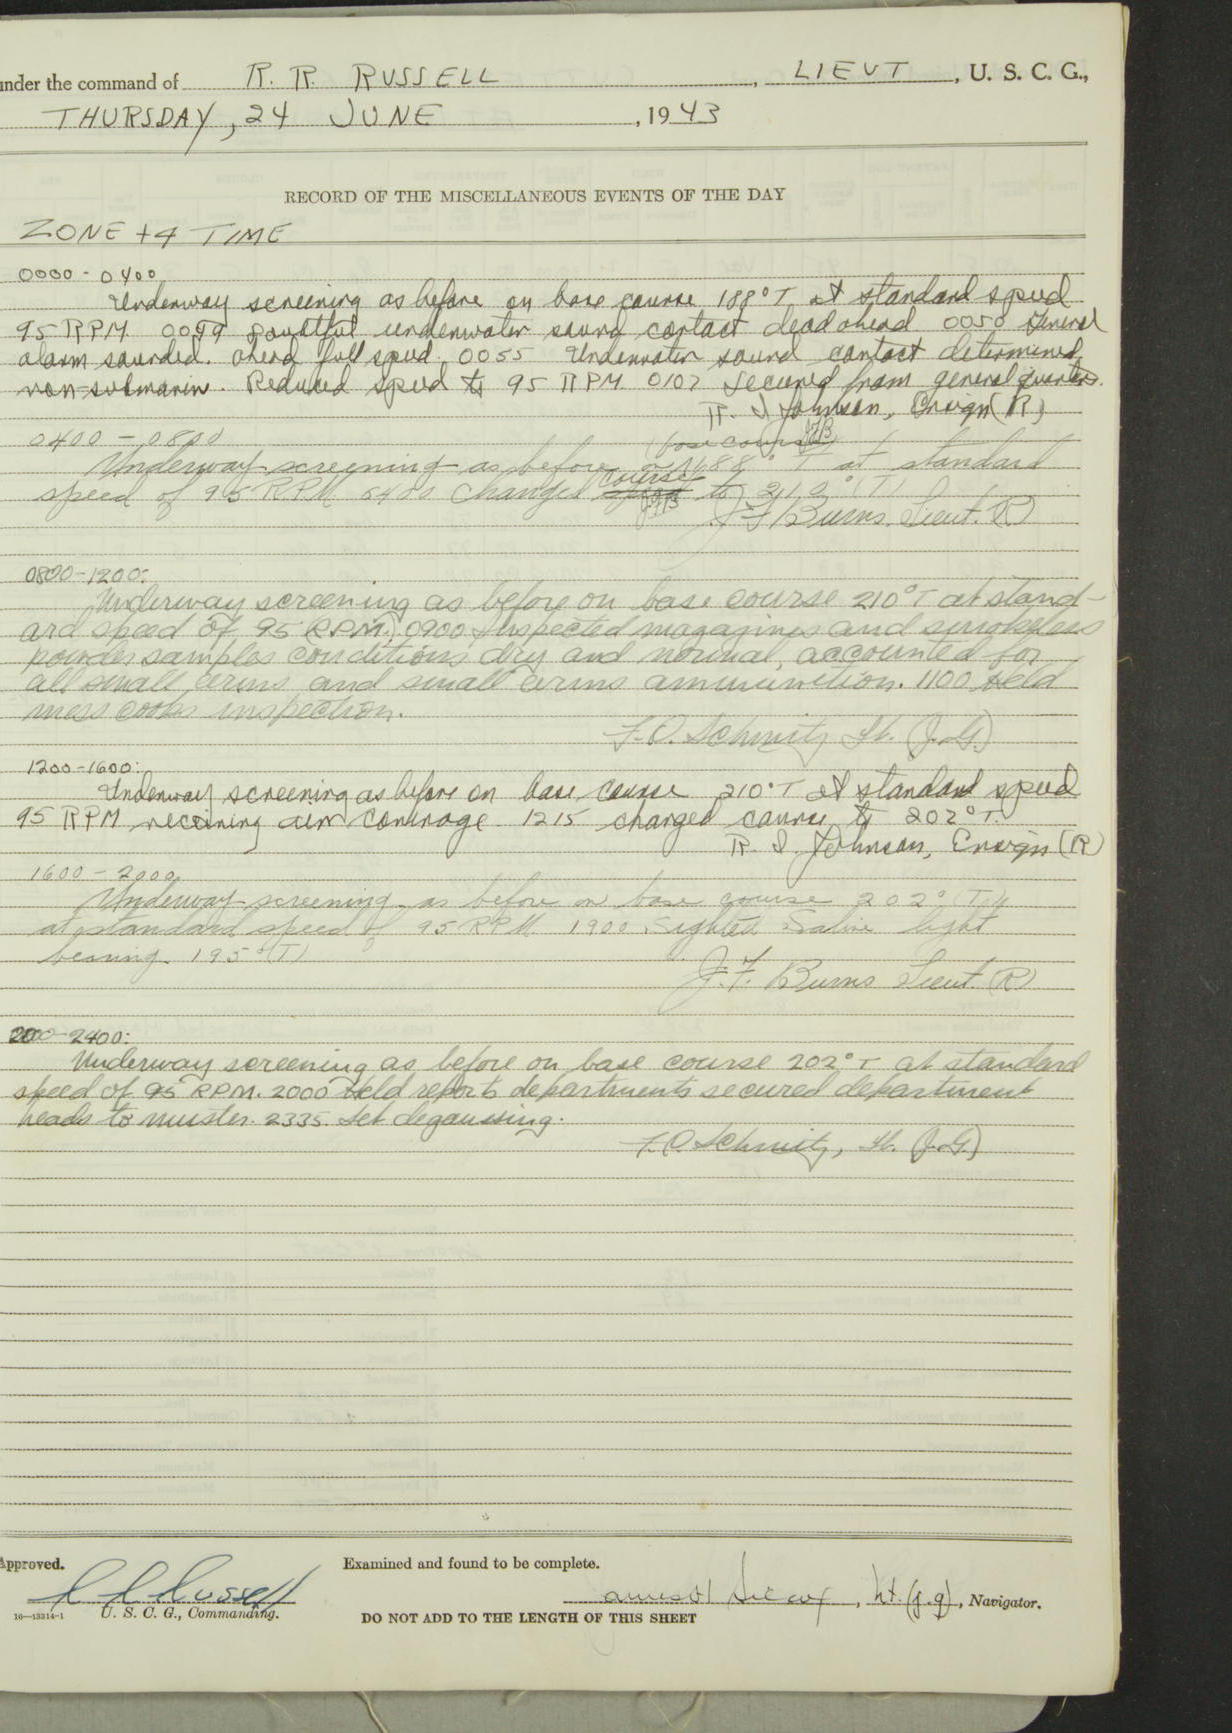 under the command of R. R. RUSSELL, LIEUT, U. S. C. G.,
THURSDAY, 24 JUNE, 1943
RECORD OF THE MISCELLANEOUS EVENTS OF THE DAY
ZONE +4 TIME
0000 - 0400
Underway screening as before on base course 188° T at standard speed
95 RPM Doubtful underwater sound contact dead ahead 0050 General
alarm sounded. Ahead full speed. 0055 Underwater sound contact determined
non-submarin. Reduced speed to 95 RPM 0107 Secured from general quarters.
R. I. Johnson, Ensign (R)
0400 - 0800
(base course JFB
Underway screening as before on 188° T at standard
course
speed of 95 RPM 0400 Changed speed to 210° (T)
JFB J.F Burns. Lieut. (R)
0800-1200:
Underway screening as before on base course 210° T at stand-
ard speed of 95 R.P.M. 0900 Inspected magazines and smokeless
powder samples conditions dry and normal, accounted for
all small arms and small arms ammunition. 1100 Held
mess cooks inspection.
F.O. Schmitz Lt. (J.G.)
1200-1600:
Underway screening as before on base course 210° T at standard speed
95 RPM receiving air coverage 1215 changed course to 202° T.
R. I. Johnson, Ensign (R)
1600 - 2000
Underway screening as before on base course 202° (T)
at standard speed of 95 RPM. 1900 Sighted light
bearing 195° (T)
J.F. Burns Lieut. (R)
2000-2400:
Underway screening as before on base course 202° T at standard
speed of 95 RPM. 2000 Held reports departments secured department
heads to muster. 2335. Set degaussing.
F.O. Schmitz, Lt. (J.G.)
Approved. Examined and found to be complete.
R R Russell Lt. (j.g), Navigator.
16—13314-1 U. S. C. G., Commanding. DO NOT ADD TO THE LENGTH OF THIS SHEET